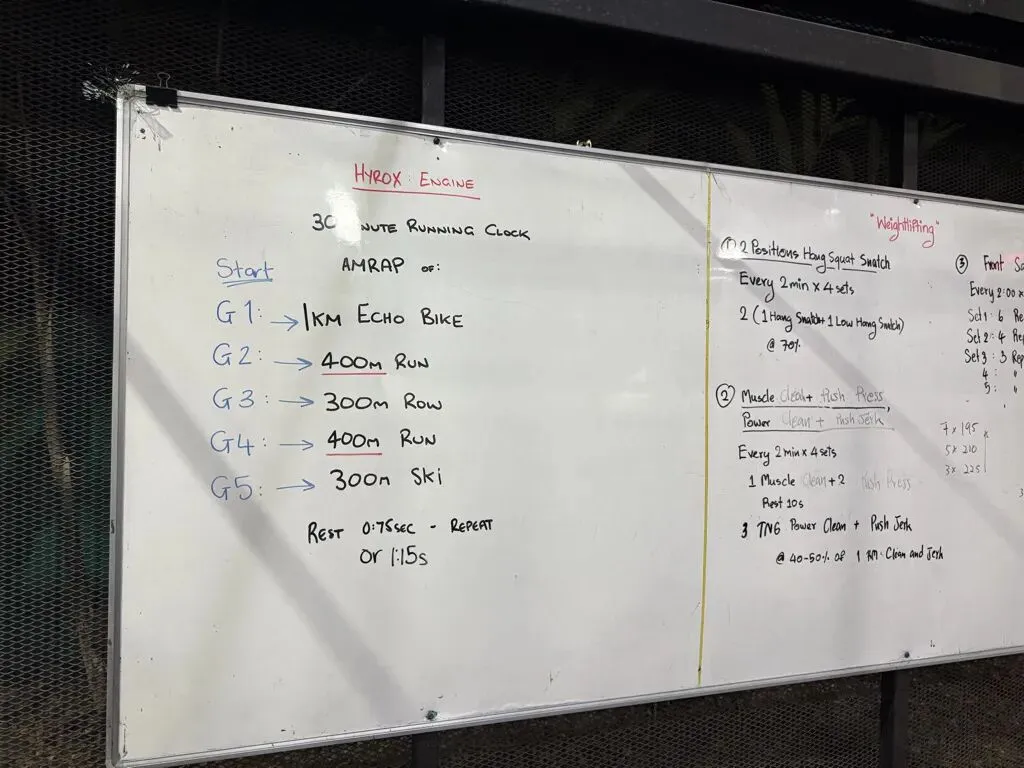 HYROX: ENGINE
30 NUTE RUNNING CLOCK
Start AMRAP OF:
G1: → 1KM ECHO BIKE
G2: → 400m RUN
G3: → 300m ROW
G4: → 400m RUN
G5: → 300m SKi
REST 0:75SEC - REPEAT
OR 1:15s
"Weightlifting"
① 2 Positions Hang Squat Snatch
Every 2min x 4 sets
2 (1 Hang Snatch + 1 Low Hang Snatch)
@ 70%
② Muscle Clean + Push Press,
Power Clean + Push Jerk
Every 2min x 4 sets
1 Muscle Clean + 2 Push Press
Rest 10s
3 TNG Power Clean + Push Jerk
@ 40-50% of 1 RM: Clean and Jerk
③ Front
Every 2:00 x
Set 1: 6 Re
Set 2: 4 Rep
Set 3: 3 Rep
4: "
5: "
7 x 195
5 x 210
3 x 225